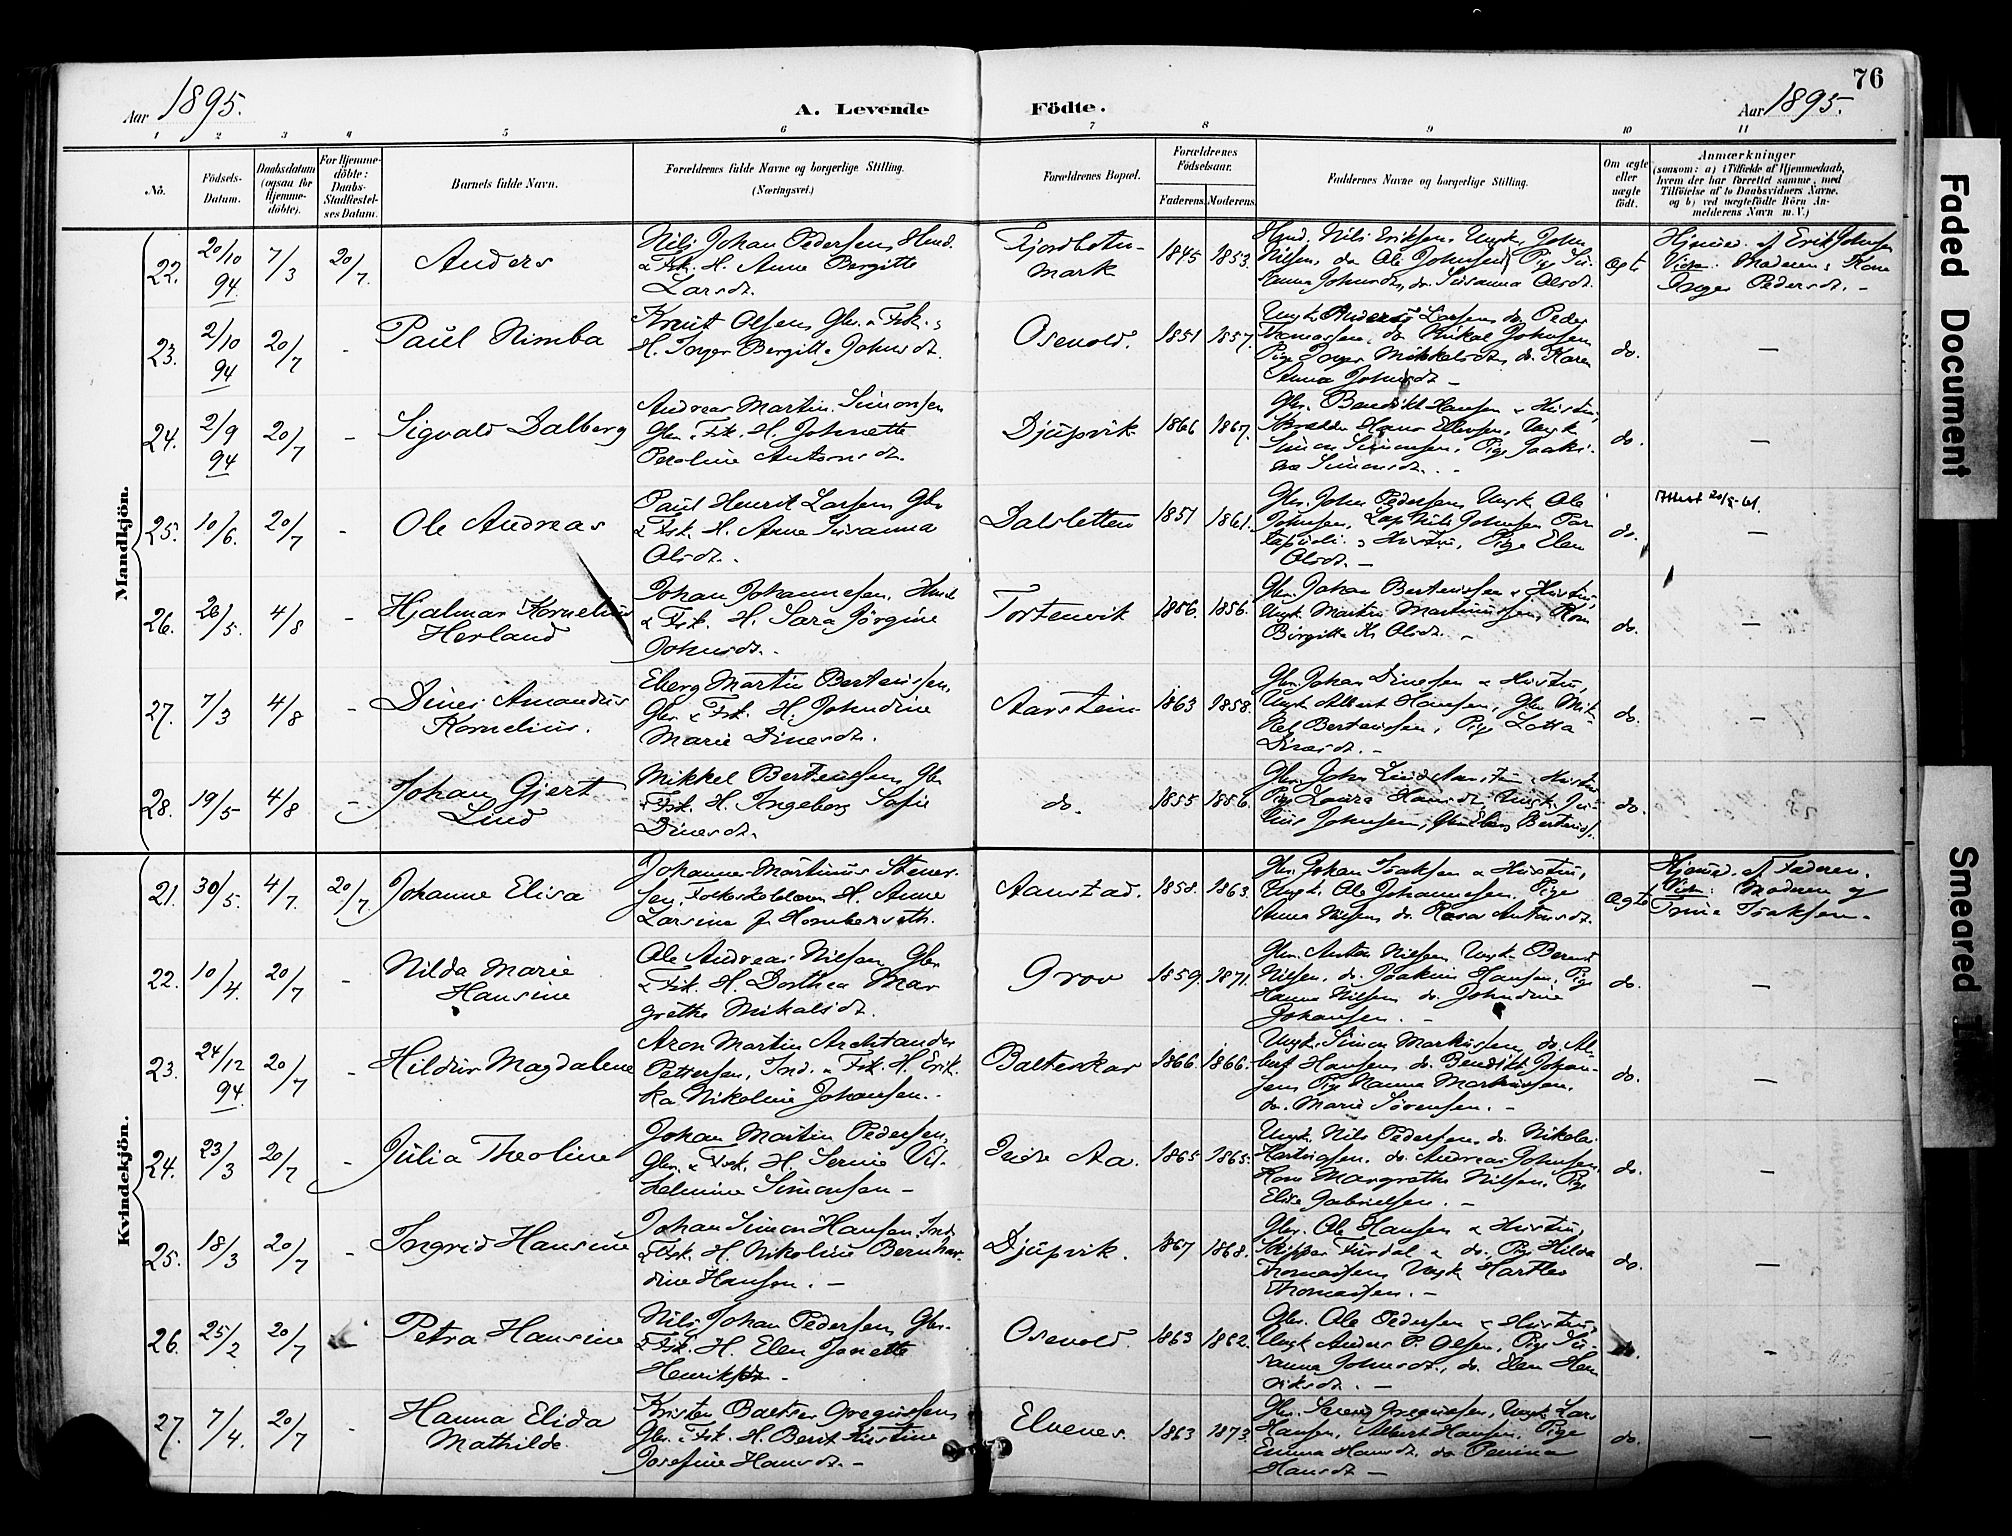 76
Aar 1895.
A. Levende Födte.
Aar 1895.
1 2 3 4 5 6 7 8 9 10 11
No.
Födsels-Datum.
Daabsdatum (ogsaa for Hjemme-döbte).
For Hjemme-döbte: Daabs-Stadfæstel-ses Datum.
Barnets fulde Navn.
Forældrenes fulde Navne og borgerlige Stilling.
(Næringsvei.)
Forældrenes Bopæl.
Forældrenes Födselsaar.
Faderens. Moderens.
Faddernes Navne og borgerlige Stilling.
Om ægte eller uægte födt.
Anmærkninger
(saasom: a) i Tilfælde af Hjemmedaab,
hvem der har forrettet samme, med
Tilföielse af to Daabsvidners Navne,
og b) ved uægtefödte Börn An-
melderens Navn m. V.)
Mandkjön.
22. 20/10 94. 7/3 20/7. Anders
Nils Johan Pedersen, Hmd.
& Fsk. H. Anne Bergitte
Larsdt.
Fjordbotn-
mark
1845 1853.
Hmd. Nils Eriksen, Ungk. John
Nilsen, do Ole Johnsen, Pige Su-
sanna Johnsdt, do. Susanna Olsdt.
ægte
Hjemmed. af Erik Johnsen
Vidn: Moderen, Kone
Inger Pedersdt. -
23. 2/10 94 20/7 - Paul Nimba
Knut Olsen, Gbr. & Fsk. -
H. Inger Bergitte Johnsdt.
Osevold.
1851 1857.
Ungk. Anders Larsen do. Peder
Thomassen, do. Mikal Johnsen
Pige Inger Mikkelsdt, do. Karen
Anna Johnsdt -
do. -
24. 2/9 94 20/7 - Sigvald Dalberg
Andreas Martin Simonsen
Gbr. & Fsk. H. Johnette
Peroline Antonsdt.
Djupvik
1866 1867.
Gbr. Bendikt Hansen & Hustru,
Skrædder Hans Ellevsen, Ungk
Simon Simonsen, Pige Joaki-
ne Simonsdt. -
do. -
25. 10/6. 20/7 - Ole Andreas
Paul Henrik Larsen, Gbr
& Fsk. H. Anne Susanna
Olsdt.
Dalsletten
1851 1861.
Gbr. John Pedersen, Ungk. Ole
Johnsen, Lap Nils Johnsen Par
& Hustru, Pige Elen
Olsdt. -
do.
Attest 20/5-61.
-
26. 26/5. 4/8 - Hjalmar Kornelius
Herland
Johan Johannesen, Hmd
& Fsk. H. Sara Jörgine
Johnsdt. -
Tortenvik
1856. 1856.
Gbr. Johan Berteussen & Hustru,
Ungk. Martin Martinussen, Kone
Birgitte K. Olsdt. -
do. -
27. 7/3 4/8 - Dines Amandus
Kornelius.
Eberg Martin Berteussen,
Gbr & Fsk. H. Johndine
Marie Dinesdt.
Aarstein
1863 1858.
Gbr. Johan Dinesen & Hustru,
Ungk Albert Hansen, Gbr Mik-
kel Berteussen, Pige Lotta
Dinesdt. -
do. -
28. 19/5 4/8 - Johan Gjert
Lind
Mikkel Berteussen, Gbr
& Fsk. H. Ingeborg Sofie
Dinesdt.
do.
1855 1856.
Gbr. John Lind & Hustru
Pige Laura Hansdt, Ungk. Ju-
lius Johnsen, Gbr. Eberg Berteuss.
do.
Kvindekjön.
21. 30/5. 4/7. 20/7. Johanne Elisa
Johannes Martinus Stener-
sen, Folkeskolelærer H. Anne
Larsine f. Hornbæseth.
Aanstad.
1858. 1863.
Gbr. Johan Isaksen & Hustru,
Ungk. Ole Johannesen, Pige
Anna Nilsen do. Rosa Antonsdt.
ægte
Hjemmed. af Faderen.
Vidn: Moderen og
Trine Isaksen. -
22. 10/4. 20/7 - Nilda Marie
Hansine
Ole Andreas Nilsen, Gbr
& Fsk. H. Dorthea Mar
grethe Mikalsdt.
Grov
1859. 1871.
Gbr. Anton Nilsen Ungk. Bernt
Nilsen, do. Joakim Hansen, Pige
Hanna Nilsen do. Johndine
Johansen. -
do. -
23. 24/12 94. 20/7 - Hildur Magdalene
Aron Martin Archtander
Pettersen, Ind. & Fsk. H. Erik-
ka Nikoline Johansen. -
Balteskar
1866. 1866.
Ungk. Simon Markussen, do. Al-
bert Hansen, do. Benedikt Johan-
sen Pige Hanna Markussen,
do. Marie Sörensen. -
do. -
24. 23/3 20/7 - Julia Theoline
Johan Martin Pedersen,
Gbr. & Fsk. H. Serine Vil-
helmine Simonsen -
Indre Aa.
1865 1865.
Ungk. Nils Pedersen, do. Nikolai
Hartvigsen, do. Andreas Johnsen,
Kone Margrethe Nilsen, Pige
Elise Gabrielsen. -
do. -
25. 18/3 20/7 - Ingrid Hansine
Johan Simon Hansen, Ind
& Fsk. H. Nikoline Bernhar-
dine Hansen. -
Djupvik.
1867 1868.
Gbr. Ole Hansen & Hustru,
Skipper Furdal & do., Pige Hilda
Thomassen, Ungk Hartlev
Thomassen. -
do. -
26. 25/2 20/7 Petra Hansine
Nils Johan Pedersen, Gbr.
& Fsk. H. Elen Joriette
Henriksdt. -
Osevold.
1863 1862.
Gbr. Ole Pedersen & Hustru,
Ungk Anders P. Olsen, Pige Su-
sanna Johnsdt, do. Elen Hen
riksdt. -
do. -
27. 7/4. 20/7 - Hanna Elida
Mathilde.
Kristen Baltser Gregussen,
Gbr. & Fsk. H. Berit Kristine
Josefine Hansdt. -
Elvenes.
1863 1873.
Gbr. Gregusen, Ungk Lars
Hansen, Albert Hansen, Pige
Emma Hansdt. do Penina
Hansdt -
do. -
Faded Document
Smeared